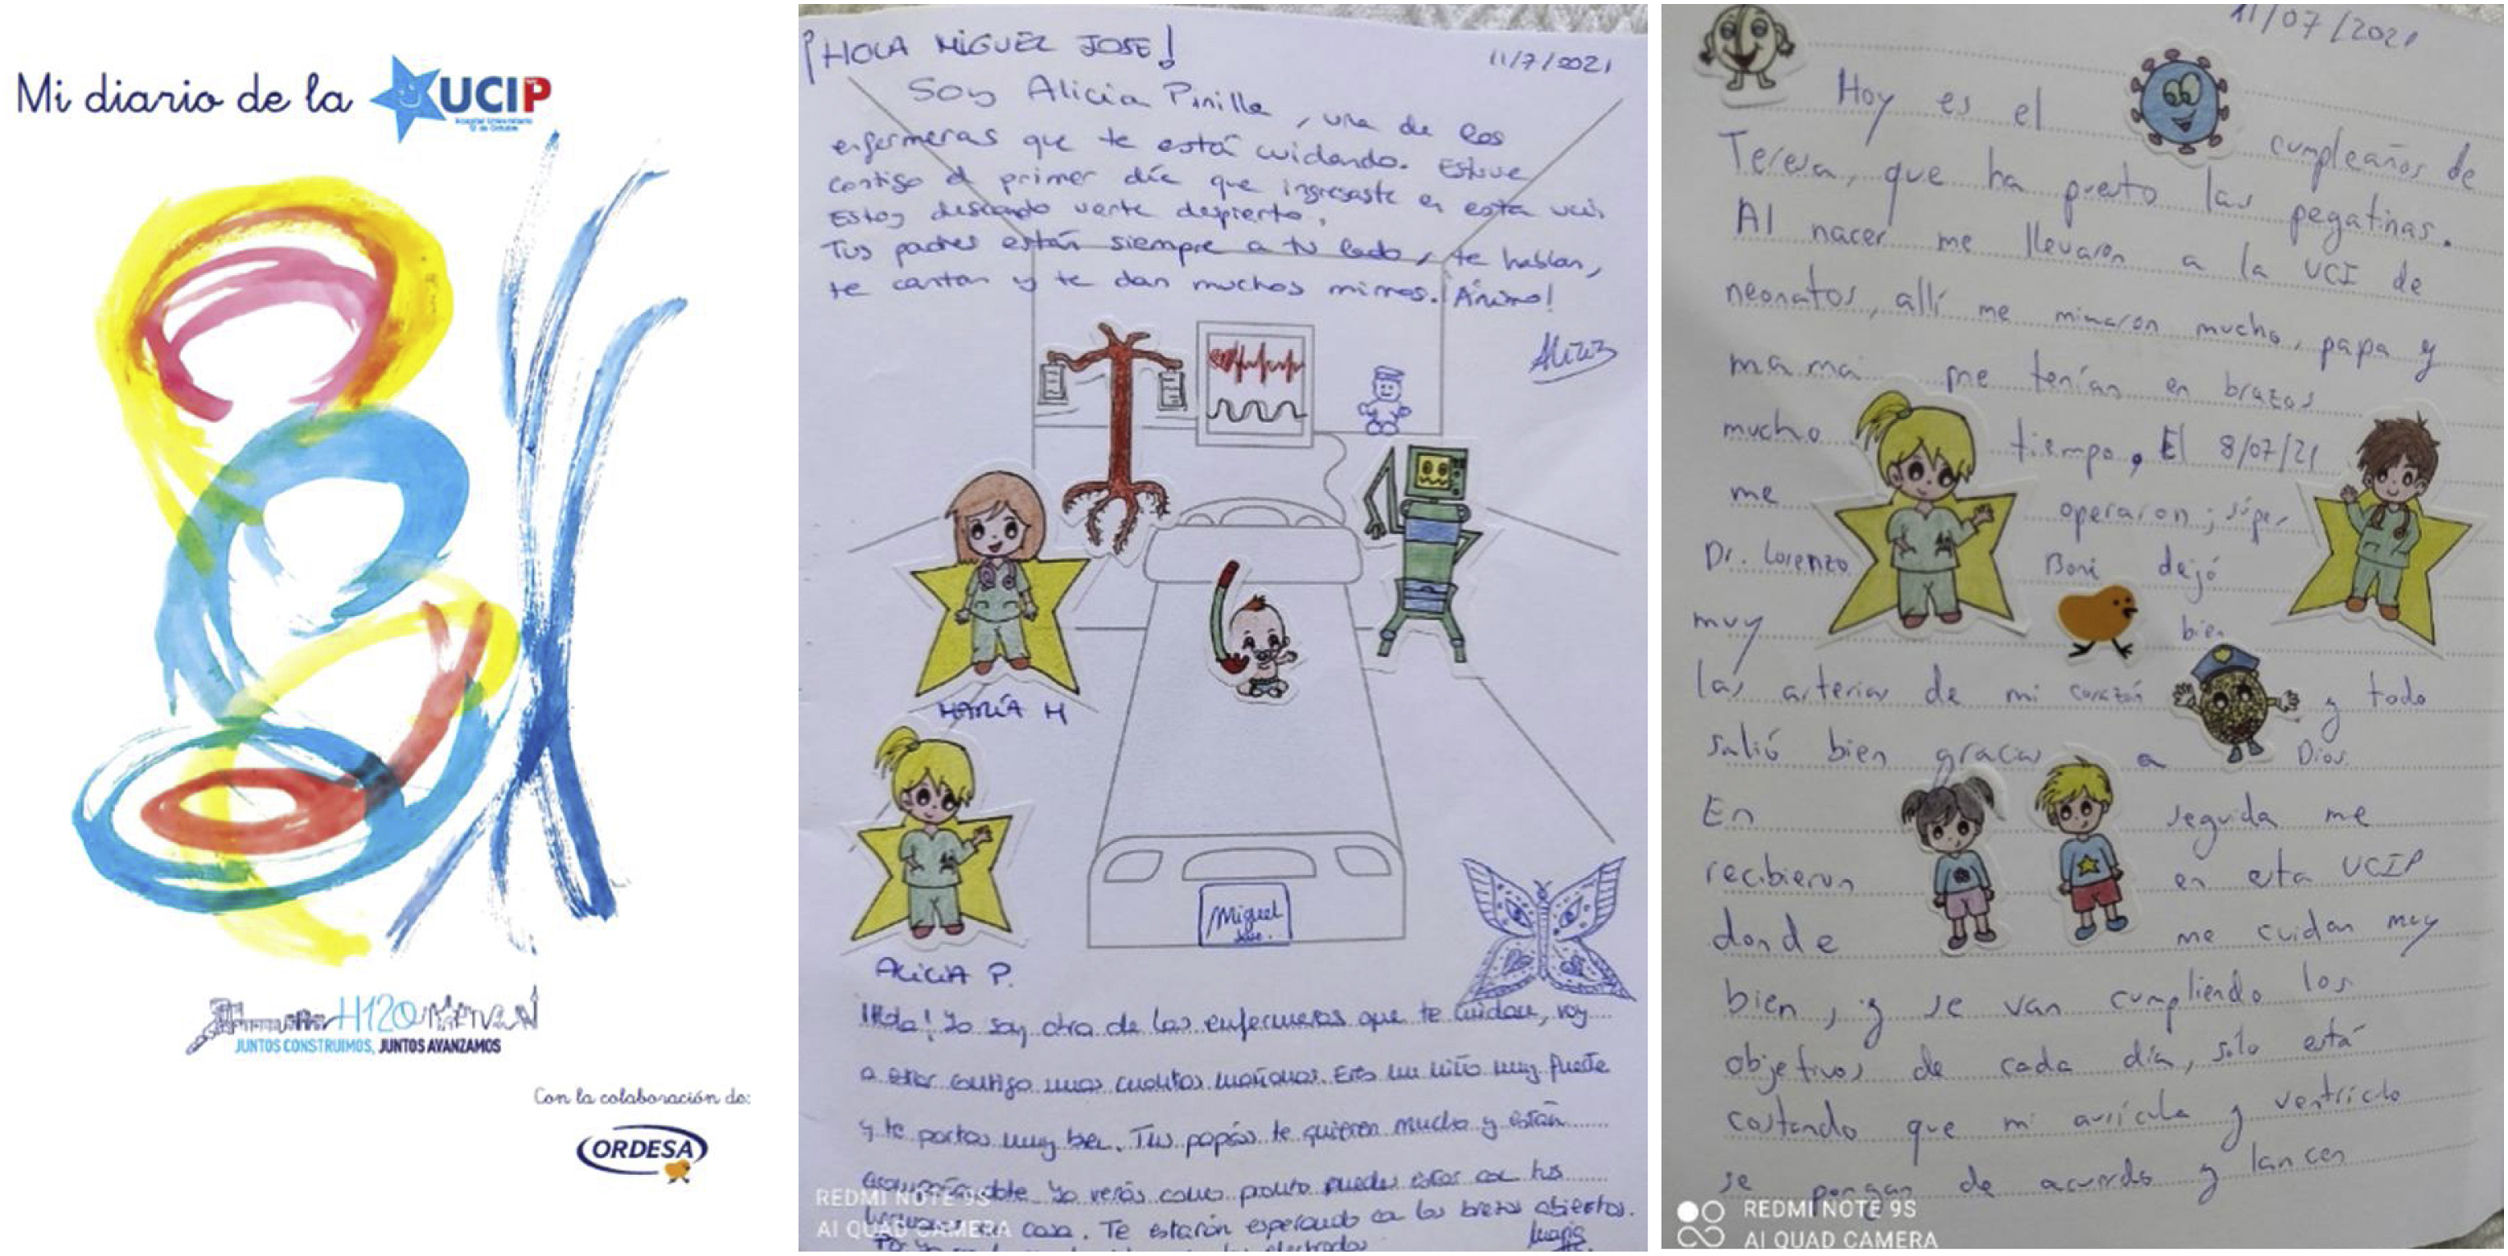 Mi diario de la UCIP
Hospital Universitario
12 de Octubre
H12O
JUNTOS CONSTRUIMOS, JUNTOS AVANZAMOS
Con la colaboración de:
ORDESA
¡HOLA MIGUEL JOSE!
11/7/2021
Soy Alicia Pinilla, una de las
enfermeras que te está cuidando. Estuve
contigo el primer día que ingresaste en esta ucip
Estoy deseando verte despierto.
Tus padres están siempre a tu lado, te hablan,
te cantan y te dan muchos mimos. ¡Ánimo!
MARÍA H
ALICIA P.
Miguel
Jose.
¡Hola! Yo soy otra de las enfermeras que te cuidan, voy
a estar contigo unas cuantas mañanas. Eres un niño muy fuerte
y te portas muy bien. Tus papás te quieren mucho y están
acompañándote. Ya verás como pronto puedes estar con tus
hermanos en casa. Te estarán esperando con los brazos abiertos.
María
electrodos
REDMI NOTE 9S
AI QUAD CAMERA
11/07/2021
Hoy es el cumpleaños de
Teresa, que ha puesto las pegatinas.
Al nacer me llevaron a la UCI de
neonatos, allí me mimaron mucho, papa y
mama me tenían en brazos
mucho tiempo. El 8/07/21
me operaron; súper
Dr. Lorenzo Boni dejó
muy bien
las arterias de mi corazón y todo
salió bien gracias a Dios
En seguida me
recibieron en esta UCIP
donde me cuidan muy
bien, y se van cumpliendo los
objetivos de cada día, solo está
costando que mi aurícula y ventrículo
se pongan de acuerdo y lancen
REDMI NOTE 9S
AI QUAD CAMERA